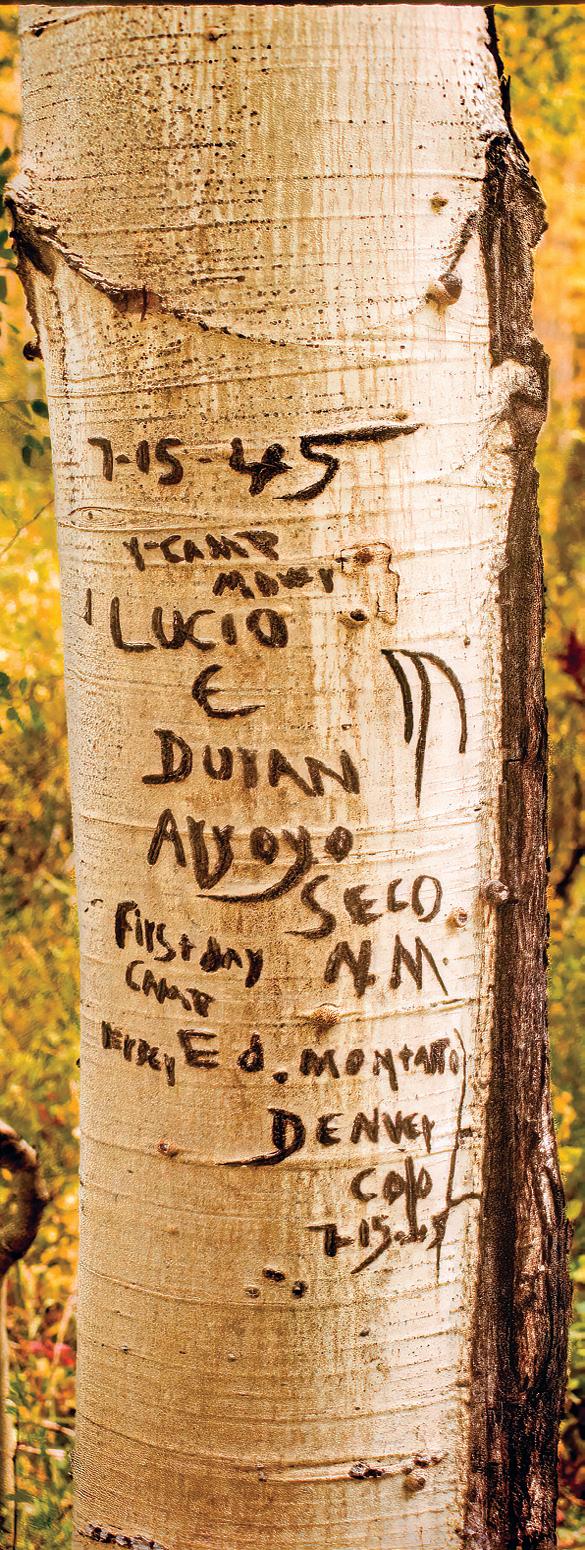 7-15-45
Y-CAMP
LUCIO
E
DURAN
Arroyo
SECO
N.M.
First day
CAMP
Ed. MONtANO
DENVEr
Colo
7-15-45